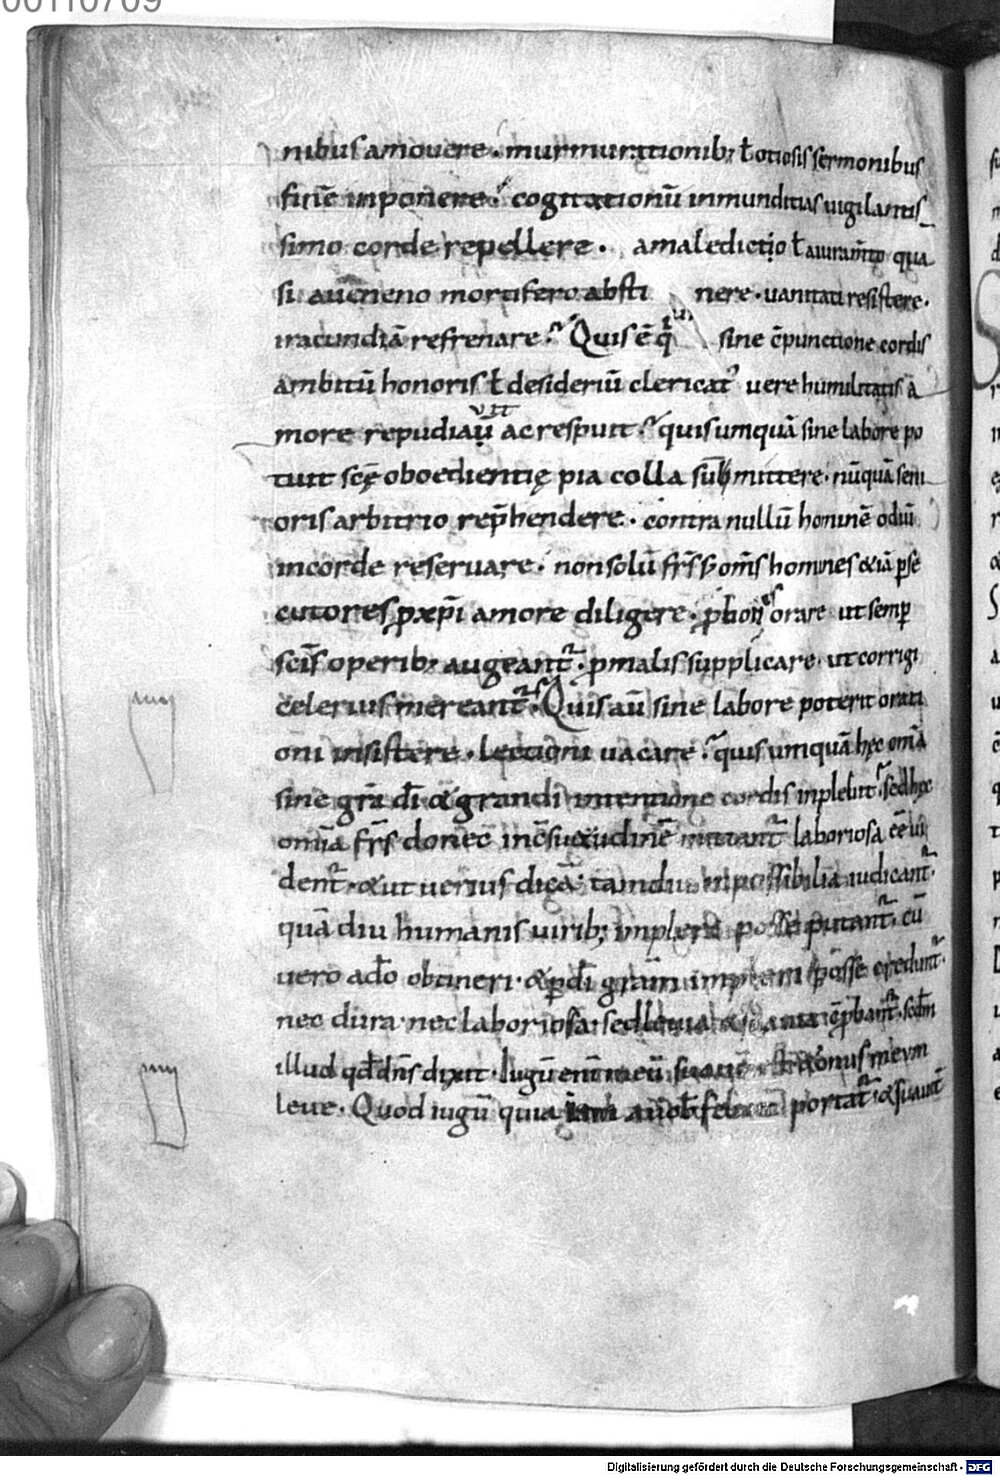 nibus amouere. murmurationib; ł otiosis sermonibus
finē inponere. cogitationū inmunditias uigilantis
simo corde repellere. a maledictio ł aiuram̄to qua
si a ueneno mortifero absti nere. uanitati resistere.
iracundiā refrenare. Quis ē q̄ sine cōpunctione cordis
ambitū honoris ł desideriū clericat᾽ uere humilitatis a
more repudiaū uit ac respuit. quis umquā sine labore po
tuit scę̄ oboedientię pia colla submittere. nūquā seni
oris arbitrio rep̄hendere. contra nullū hominē odiū
in corde reseruare. non solū frīs ꝑ om̄s homines & iā ꝑse
cutores ꝓ xp̄i amore diligere. ꝓ bonis orare ut semꝑ
scīs operib; augeant᷑. ꝓ malis supplicare. ut corrigi
celerius mereant᷑. Quis aū sine labore poterit orati
oni insistere. Lectioni uacare. quis umquā hęc om̄a
sine gr̄a dī & grandi intentione cordis inplebit. sed hęc
om̄ia frs̄ donec in cōsuetudinē mittant᷑ laboriosa ēē ui
dent᷑. & ut uerius dicā. tamdiu inpossibilia iudicant᷑.
quā diu humanis uirib; inpleri posse putant᷑. cū
uero a dō obtineri. & ꝑ dī gr̄am impleri posse credunt᷑.
nec dura. nec laboriosa. sed leuia & suauia cōprobant᷑. scdm̄
illud qd̄ dn̄s dixit. Iugū eni meū suaue est & onus meum
leue. Quod iugū quia portat᷑. & suauit᷑
00110709
Digitalisierung gefördert durch die Deutsche Forschungsgemeinschaft - DFG